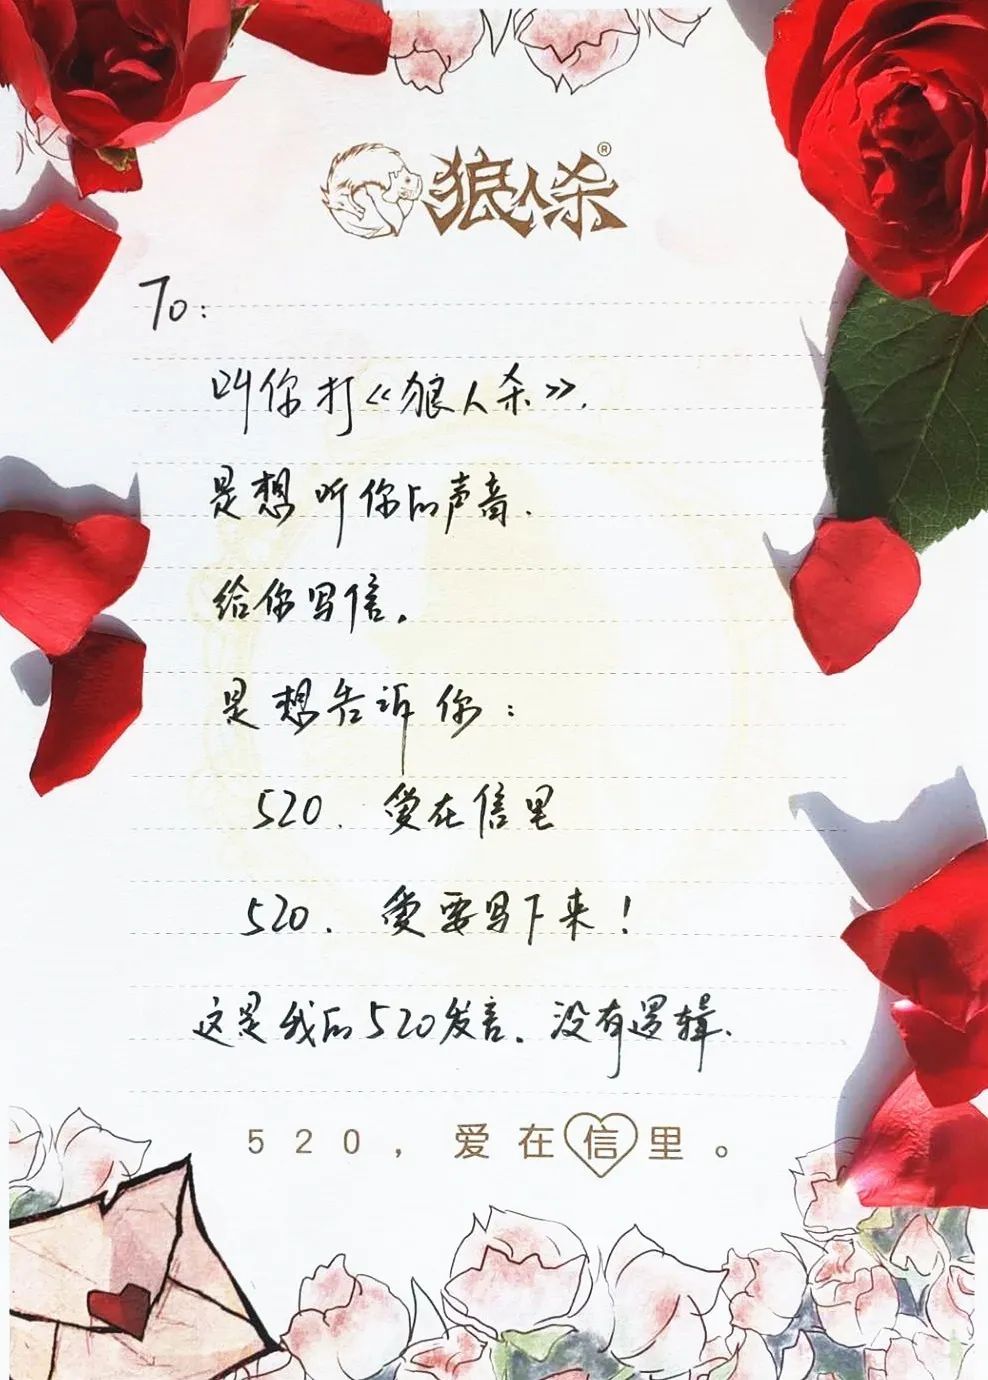 狼人杀®
To:
叫你打《狼人杀》.
是想听你的声音.
给你写信。
是想告诉你：
520. 爱在信里
520. 爱要写下来！
这是我的520发言. 没有逻辑.
520，爱在信里。